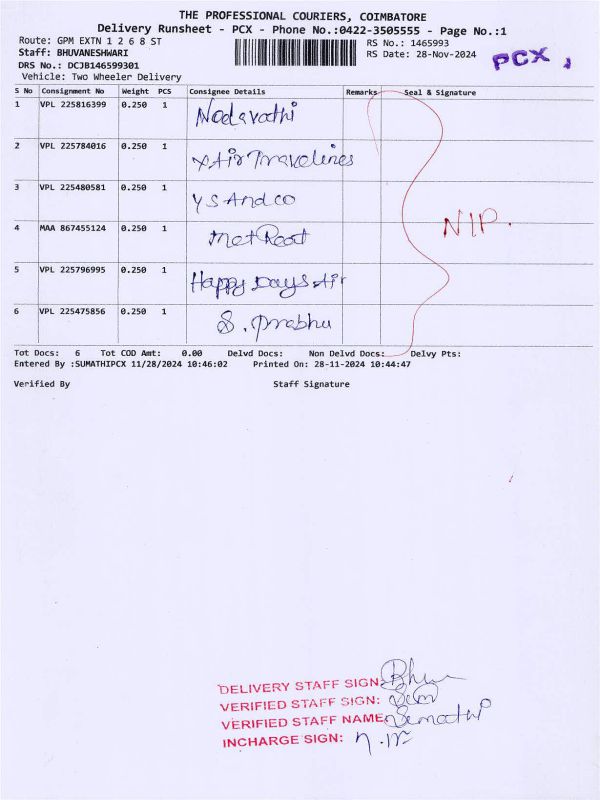 THE PROFESSIONAL COURIERS, COIMBATORE
Delivery Runsheet - PCX - Phone No.:0422-3505555 - Page No.:1
Route: GPM EXTN 1 2 6 8 ST
RS No.: 1465993
Staff: BHUVANESHWARI
RS Date: 28-Nov-2024
PCX
DRS No.: DCJB146599301
Vehicle: Two Wheeler Delivery
S No Consignment No Weight PCS Consignee Details Remarks Seal & Signature
1 VPL 225816399 0.250 1
2 VPL 225784016 0.250 1 Air Travelines
3 VPL 225480581 0.250 1 YS And co
NIP.
4 MAA 867455124 0.250 1
5 VPL 225796995 0.250 1 Happy Days Air
6 VPL 225475856 0.250 1 S. Prabhu
Tot Docs: 6 Tot COD Amt: 0.00 Delvd Docs: Non Delvd Docs: Delvy Pts:
Entered By :SUMATHIPCX 11/28/2024 10:46:02 Printed On: 28-11-2024 10:44:47
Verified By Staff Signature
DELIVERY STAFF SIGN:
VERIFIED STAFF SIGN:
VERIFIED STAFF NAME
INCHARGE SIGN: